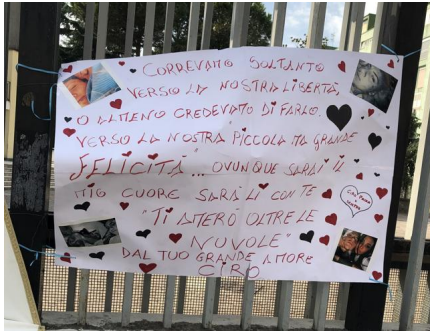 CORREVAMO SOLTANTO
VERSO LA NOSTRA LIBERTÀ,
O ALMENO CREDEVAMO DI FARLO.
VERSO LA NOSTRA PICCOLA MA GRANDE
FELICITÀ... OVUNQUE SARAI IL
MIO CUORE SARÀ LÌ CON TE
"TI AMERÒ OLTRE LE
NUVOLE"
DAL TUO GRANDE AMORE
CIRO